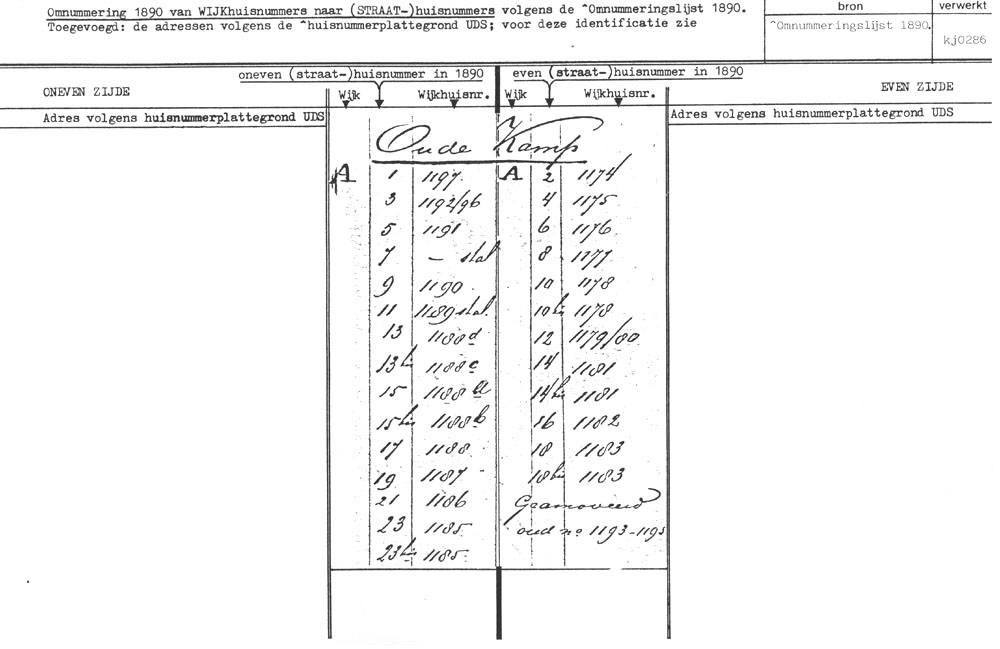 Omnummering 1890 van WIJKhuisnummers naar (STRAAT-)huisnummers volgens de ^Omnummeringslijst 1890.
Toegevoegd: de adressen volgens de ^huisnummerplattegrond UDS; voor deze identificatie zie
bron
verwerkt
^Omnummeringslijst 1890.
kj0286
oneven (straat-)huisnummer in 1890
even (straat-)huisnummer in 1890
ONEVEN ZIJDE
Wijk Wijkhuisnr.
Wijk Wijkhuisnr.
EVEN ZIJDE
Adres volgens huisnummerplattegrond UDS
Adres volgens huisnummerplattegrond UDS
Oude Kamp
A 1 1197
3 1192/96
5 1191
7 — stal
9 1190
11 1189 stal.
13 1188d
13bis 1188c
15 1188a
15bis 1188b
17 1188
19 1187
21 1186
23 1185
23bis 1185
A 2 1174
4 1175
6 1176
8 1177
10 1178
10bis 1178
12 1179/80
14 1181
14bis 1181
16 1182
18 1183
18bis 1183
Geamoveerd
oud no 1193-1195